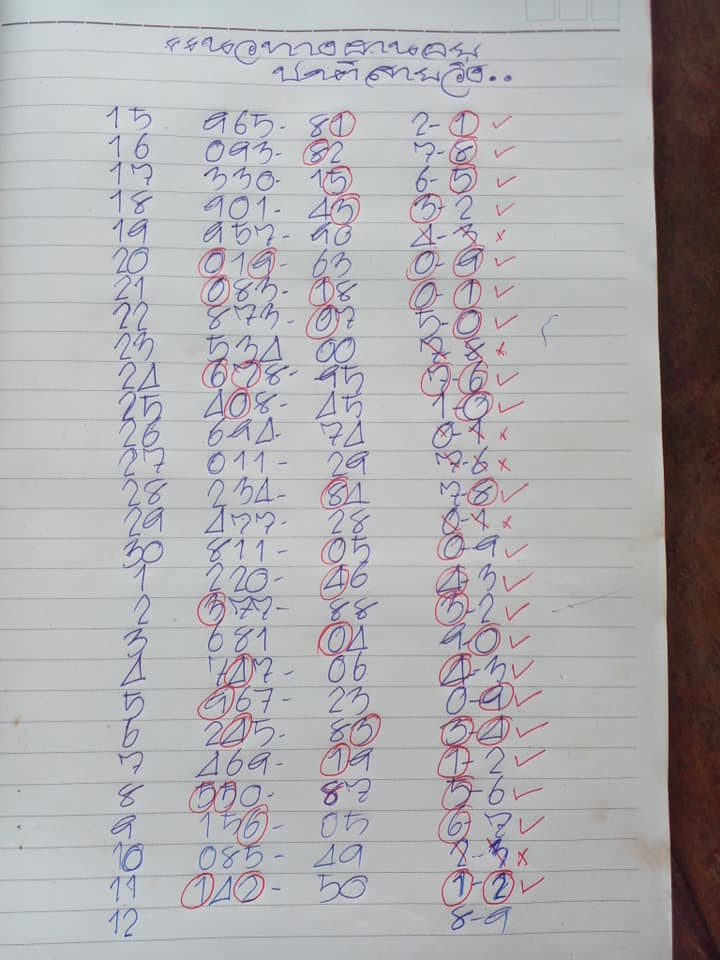 **แนวทางฮานอย
ปกติสายวิ่ง..
15 965- 81 2-1 ✓
16 093- 82 7-8 ✓
17 330- 15 6-5 ✓
18 901- 43 3-2 ✓
19 957- 90 4-3 x
20 019- 63 0-9 ✓
21 083- 18 0-1 ✓
22 873- 07 5-0 ✓
23 534 00 7-8 x
24 678- 95 7-6 ✓
25 408- 45 1-0 ✓
26 694- 74 0-1 x
27 011- 29 7-6 x
28 234- 84 7-8 ✓
29 477- 28 0-1 x
30 811- 05 0-9 ✓
1 220- 46 4-3 ✓
2 377- 88 3-2 ✓
3 681 04 9-0 ✓
4 747- 06 4-3 ✓
5 967- 23 0-9 ✓
6 245- 83 3-4 ✓
7 469- 19 1-2 ✓
8 550- 87 5-6 ✓
9 156- 05 6 7 ✓
10 085- 49 2-3 x
11 142- 50 1-2 ✓
12 8-9